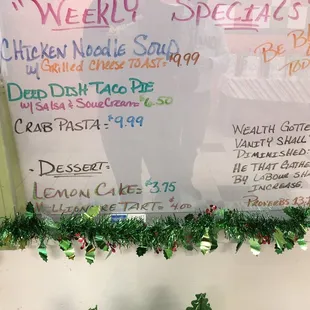 "Weekly Specials
Chicken Noodle Soup
w/ Grilled Cheese Toast $9.99
Deep Dish Taco Pie
w/ Salsa & Sour Cream = $6.50
Crab Pasta = $9.99
Dessert:
Lemon Cake = $3.75
Millionaire Tart = $4.00
Be B
Tod
Wealth Gotte
Vanity Shall
Diminished:
He that Gathe
By Labour sha
Increase.
Proverbs 13: